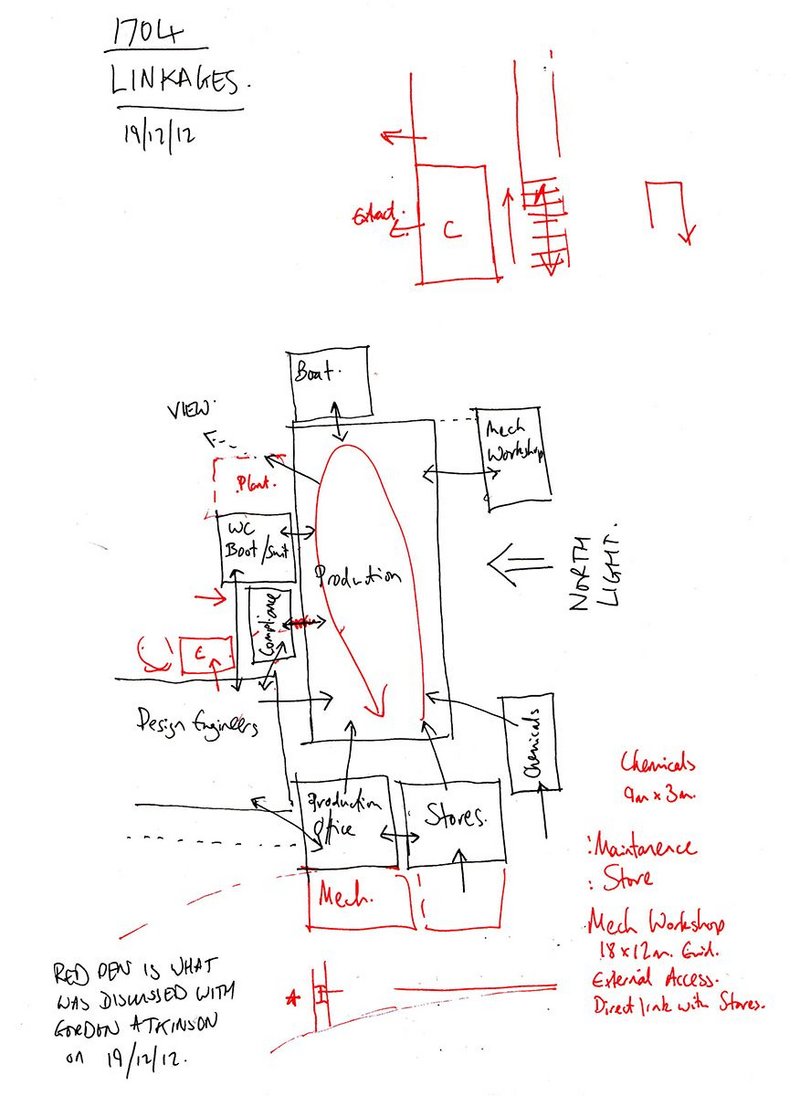 1704
LINKAGES.
19/12/12
Extract.
C
Boat.
VIEW.
Mech
Workshop
Plant.
WC
Boot/Suit
Production
NORTH
LIGHT.
Compliance
E
Design Engineers
Chemicals
Production
Office
Stores.
Mech.
Chemicals
9m x 3m.
: Maintanence
: Store
Mech Workshop
18 x 12m. Grid.
External Access.
Direct link with Stores.
RED PEN IS WHAT
WAS DISCUSSED WITH
GORDON ATKINSON
on 19/12/12.